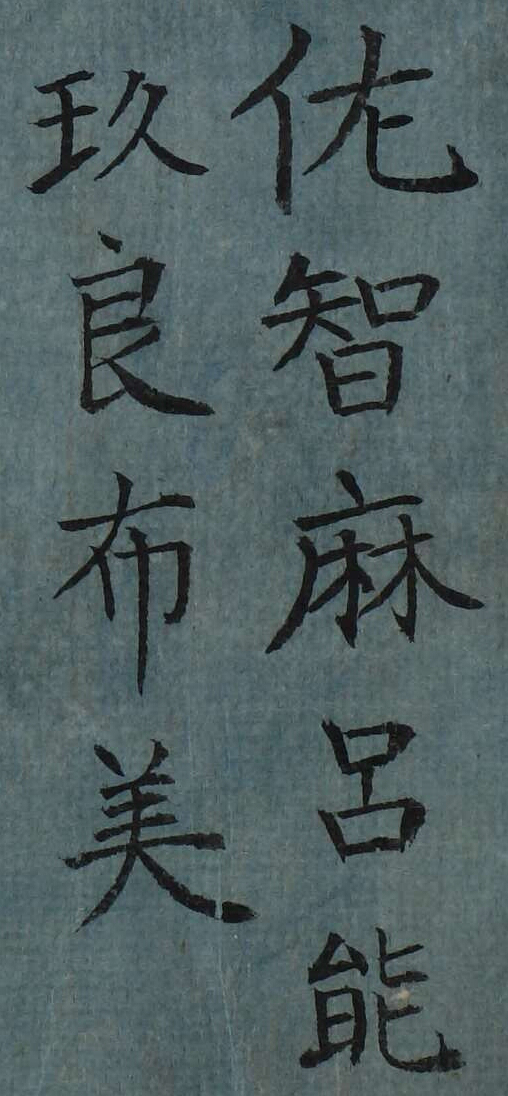 佐智麻呂能
玖良布美